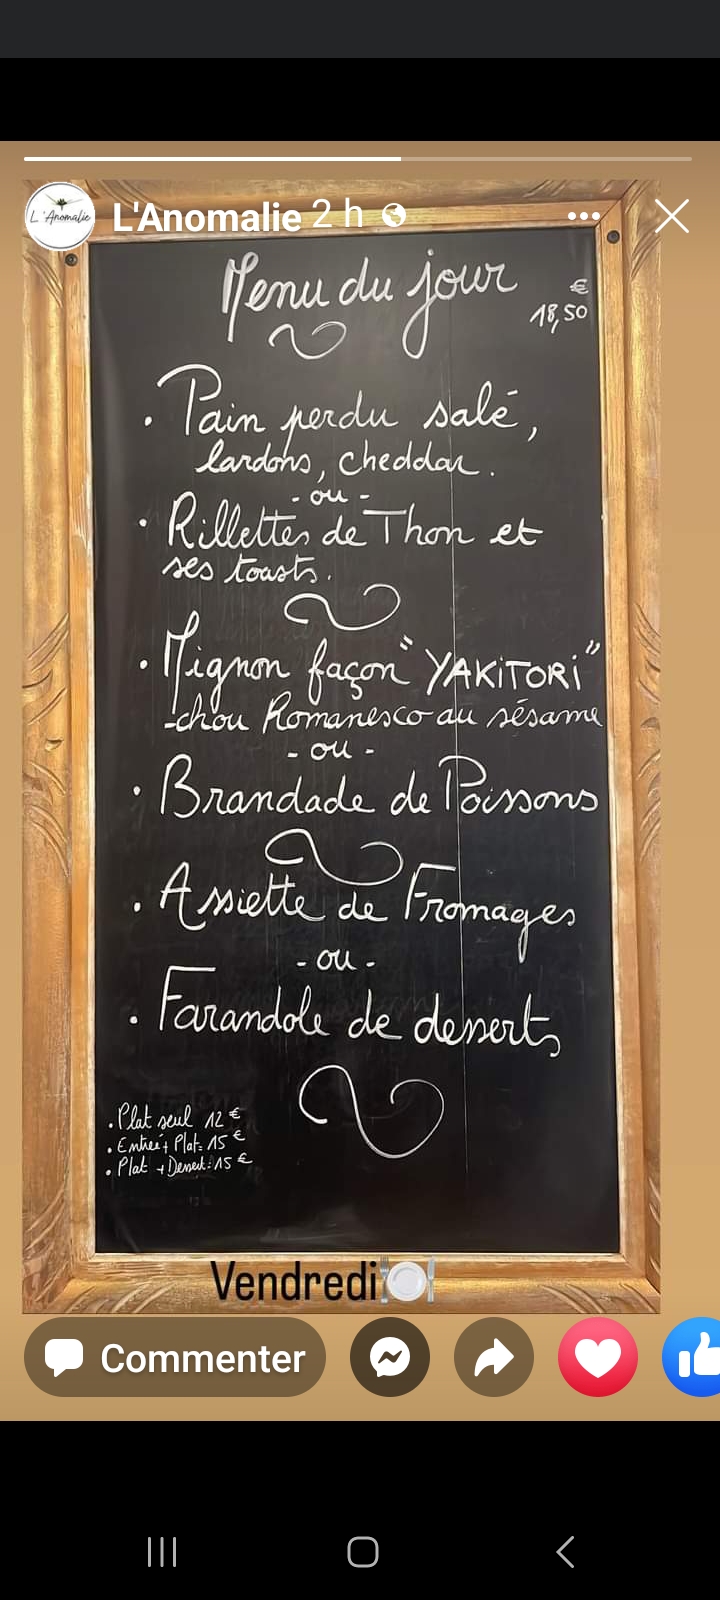 L'Anomalie
L'Anomalie 2 h
Menu du jour
€
18,50
• Pain perdu salé,
lardons, cheddar.
- ou -
• Rillettes de Thon et
ses toasts.
• Mignon façon "YAKiTORi"
-chou Romanesco au sésame
- ou -
• Brandade de Poissons
• Assiette de Fromages
- ou -
• Farandole de desserts
• Plat seul 12 €
• Entrée + Plat = 15 €
• Plat + Dessert = 15 €
Vendredi
Commenter